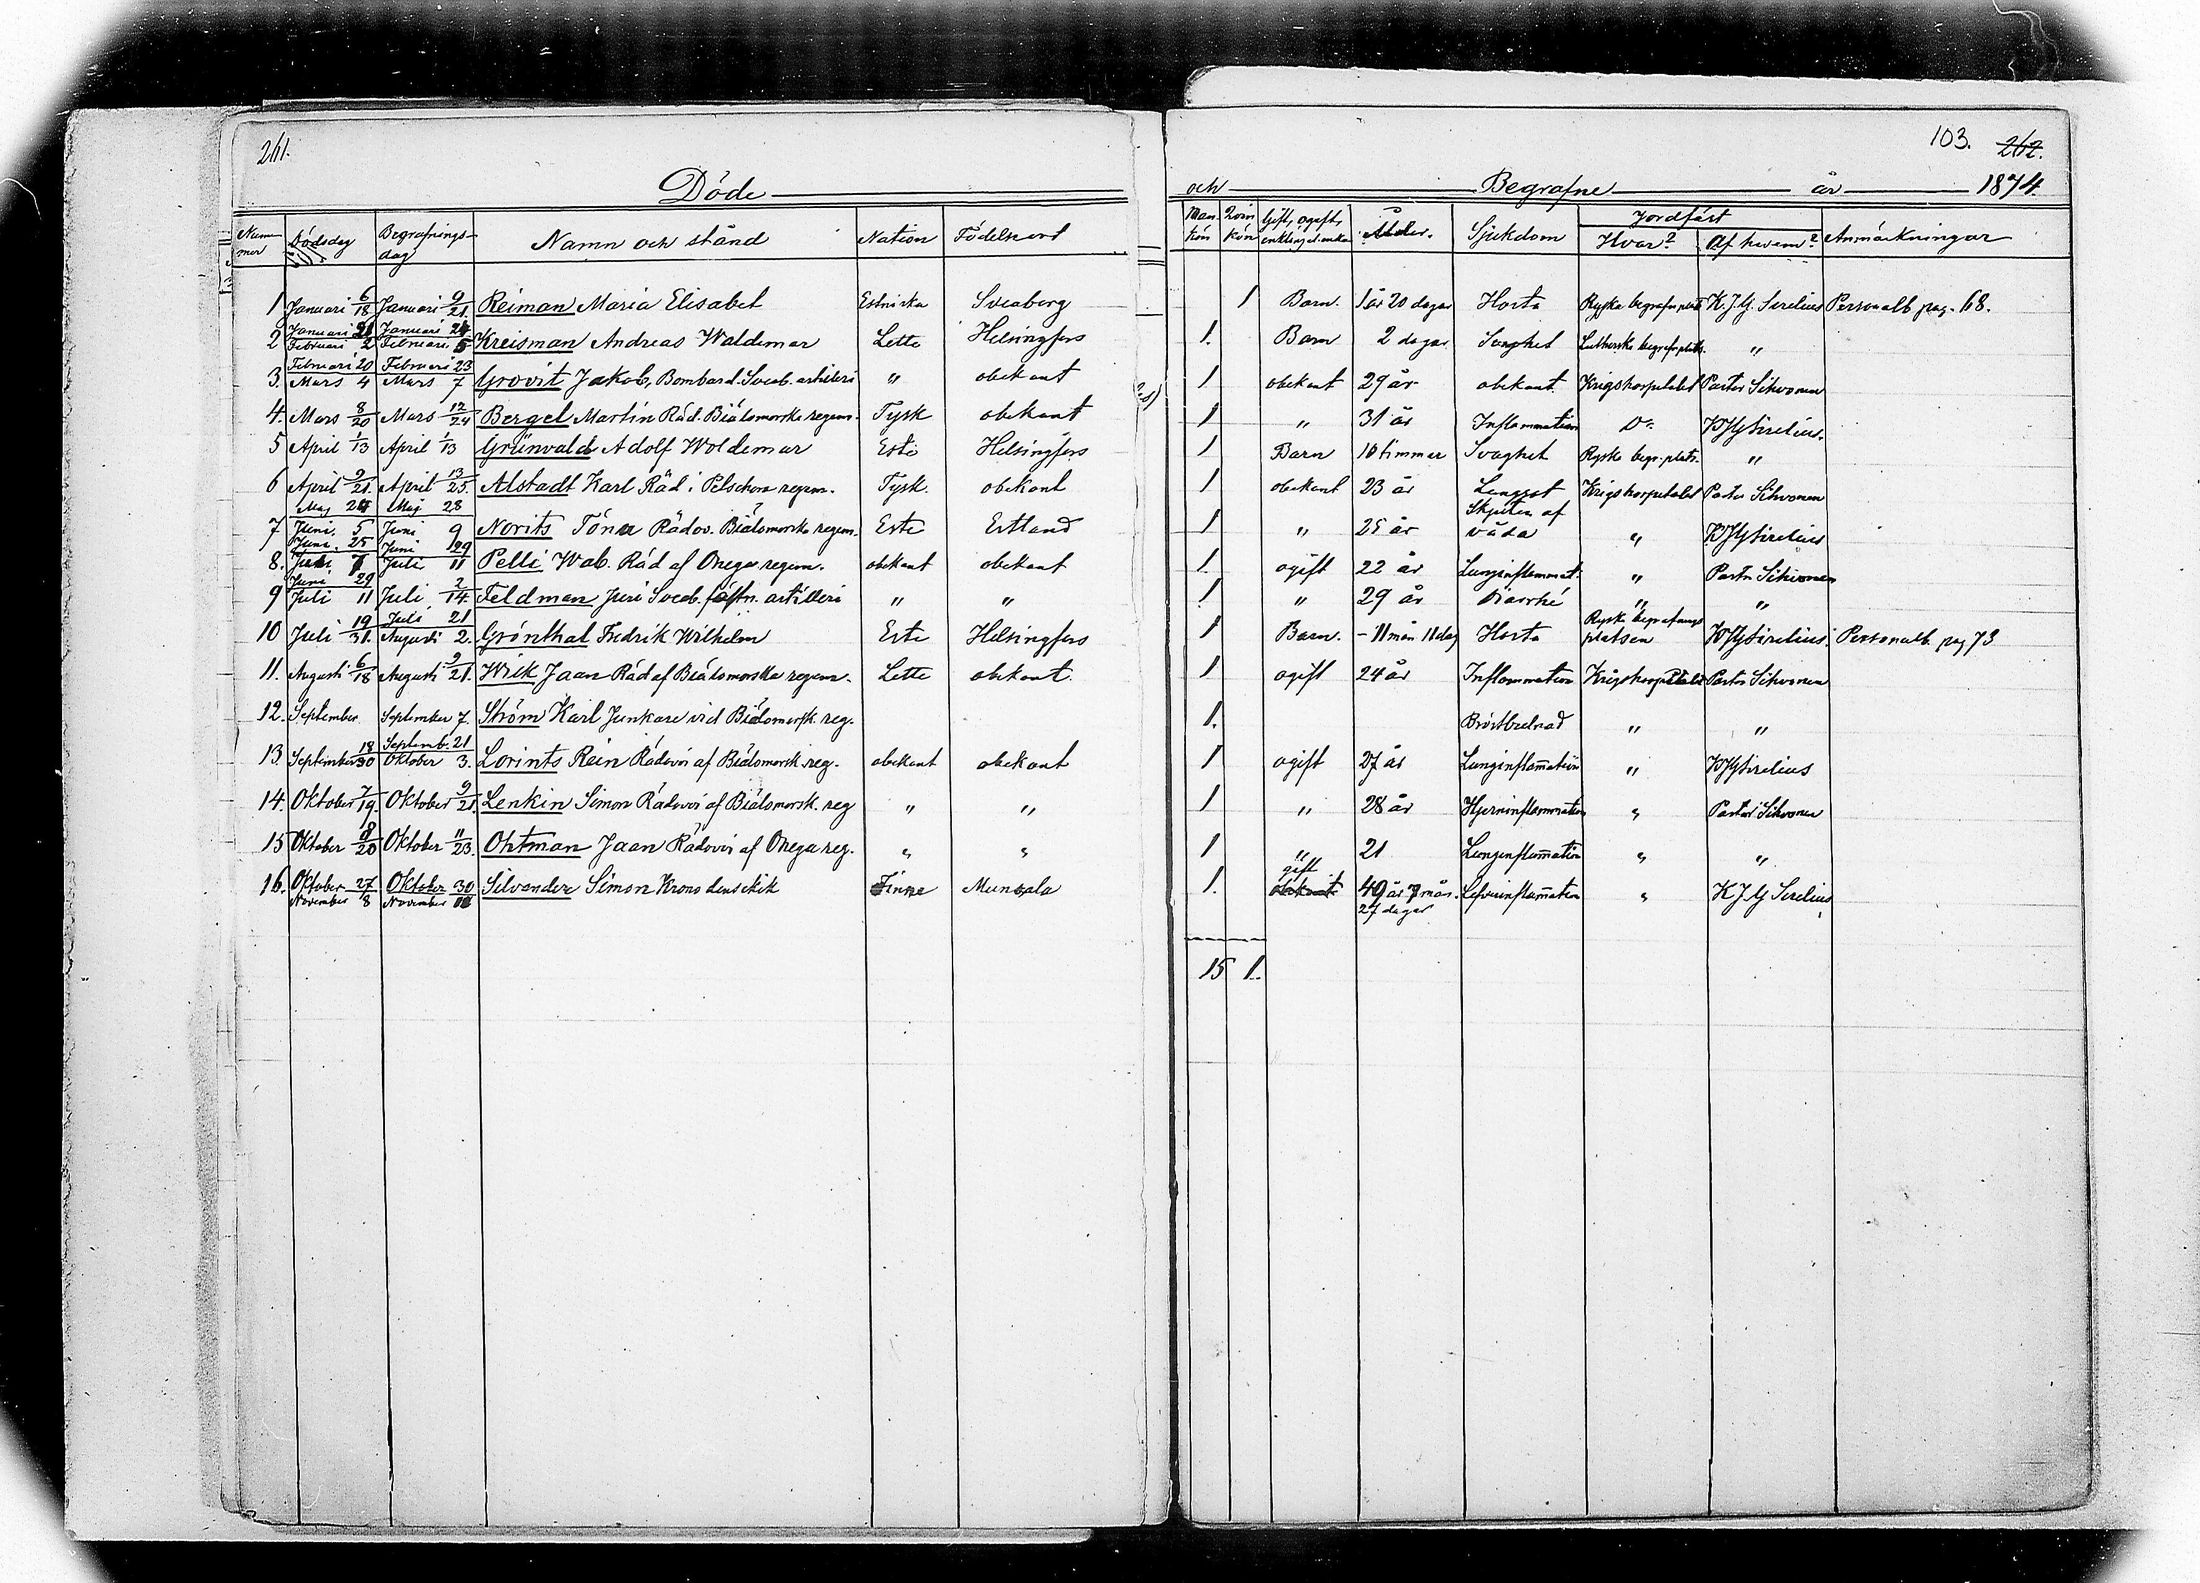 261.
103. 262.
Döde och Begrafne år 1874.
Nummer Dödsdag Begrafningsdag Namn och stånd Nation Födelseort Mankön Qvinkön Gift, ogift, enkling el. enka Ålder. Sjukdom Jordfäst Hvar? Af hvem? Anmärkningar
1 Januari 6/18 Januari 9/21. Reiman Maria Elisabet Estniska Sveaborg 1 Barn. 1 år 20 dagar Hosta Ryska begrafn.plats K. J. G. Sirelius Personalb. pag. 68.
2 Januari 21 Februari 2 Januari 24 Februari 5 Kreisman Andreas Waldemar Lette Helsingfors 1. Barn 2 dagar Svaghet Lutherska begrafn.plats. "
3. Februari 20 Mars 4 Februari 23 Mars 7 Grovit Jakob, Bombard. Sveab. artilleri " obekant 1 obekant 29 år obekant Krigshospitalet Pastor Sihvonen
4. Mars 8/20 Mars 12/24 Bergel Martin Råd. Biälomorska regem. Tysk obekant 1 " 31 år Inflammation Do KJG Sirelius.
5 April 1/13 April 1/13 Grünvald Adolf Woldemar Este Helsingfors 1 Barn 10 timmar Svaghet Ryska begr.plats. "
6 April 9/21. April 13/25. Alstadt Karl Råd. i Petschora regem. Tysk. obekant 1 obekant 23 år Lungsot Krigshospitalet Pastor Sihvonen
7 Maj 24 Juni 5 Maj 28 Juni 9 Norits Tõnu Rådov. Biälomorska regem. Este Estland 1 " 25 år Skjuten af våda " KJG Sirelius
8. Juni 25 Juli 7 Juni 29 Juli 11 Pelli Wab. Råd af Onega regem. obekant obekant 1. ogift 22 år Lunginflammat. " Pastor Sihvonen
9 Juni 29 Juli 11 Juli 2/14. Feldman Juri Sveab. fästn. artilleri " " 1 " 29 år Diarrhé " "
10 Juli 19/31. Juli 21 Augusti 2. Grönthal Fredrik Wilhelm Este Helsingfors 1 Barn. - 11 mån 11 dag Hosta Ryska begrafningsplatsen KJG Sirelius. Personalb. pag 73
11. Augusti 6/18 Augusti 9/21. Wik Jaan Råd af Biälomorska regem. Lette obekant. 1 ogift 24 år Inflammation Krigshospitalet Pastor Sihvonen
12. September September 7. Ström Karl Junkare vid Biälomorsk. reg. 1. Bröstbrand " "
13. September 18/30 Septemb. 21 Oktober 3. Lorints Rein Rådovoi af Biälomorsk. reg. obekant obekant 1 ogift 27 år Lunginflamation " KJG Sirelius
14. Oktober 7/19. Oktober 9/21. Lenkin Simon Rådovoi af Biälomorsk. reg " " 1 " 28 år Hjerninflammation " Pastor Sihvonen
15 Oktober 8/20 Oktober 11/23. Ohtman Jaan Rådovoi af Onega reg. " " 1 " 21 Lunginflamation " "
16. Oktober 27 November 8 Oktober 30 November 11 Silvander Simon Krono denschik Finne Munsala 1. gift obekant 49 år 7 mån. 27 dagar Lefverinflamation " K J G Sirelius
15 1.